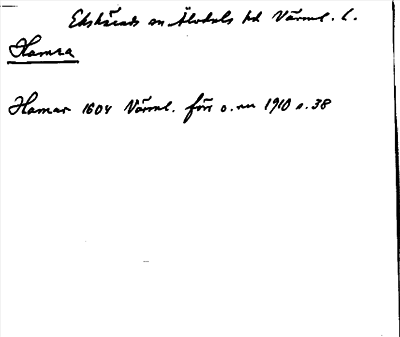 Ekshärads sn Älvdals hd Värml. l.
Hamra
Hamar 1604 Värml. förr o. nu 1910 s. 38